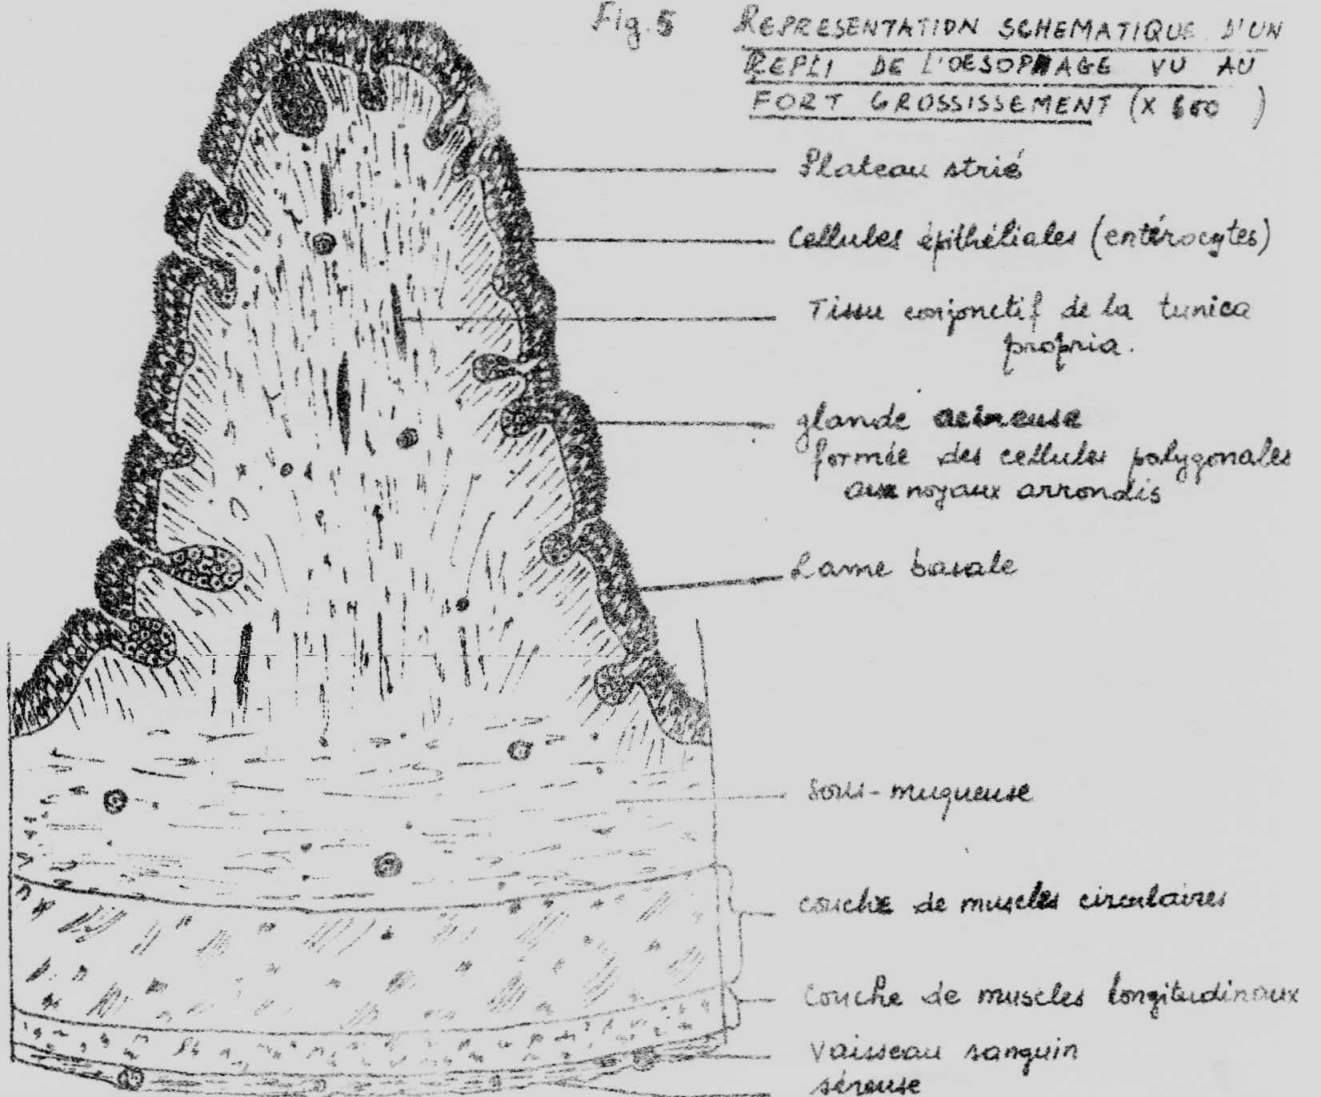 Fig. 5 REPRESENTATION SCHEMATIQUE D'UN
REPLI DE L'OESOPHAGE VU AU
FORT GROSSISSEMENT (X 600 )
Plateau strié
Cellules épithéliales (entérocytes)
Tissu conjonctif de la tunica
propria.
glande acineuse
formée des cellules polygonales
aux noyaux arrondis
Lame basale
Sous-muqueuse
couche de muscles circulaires
Couche de muscles longitudinaux
Vaisseau sanguin
séreuse